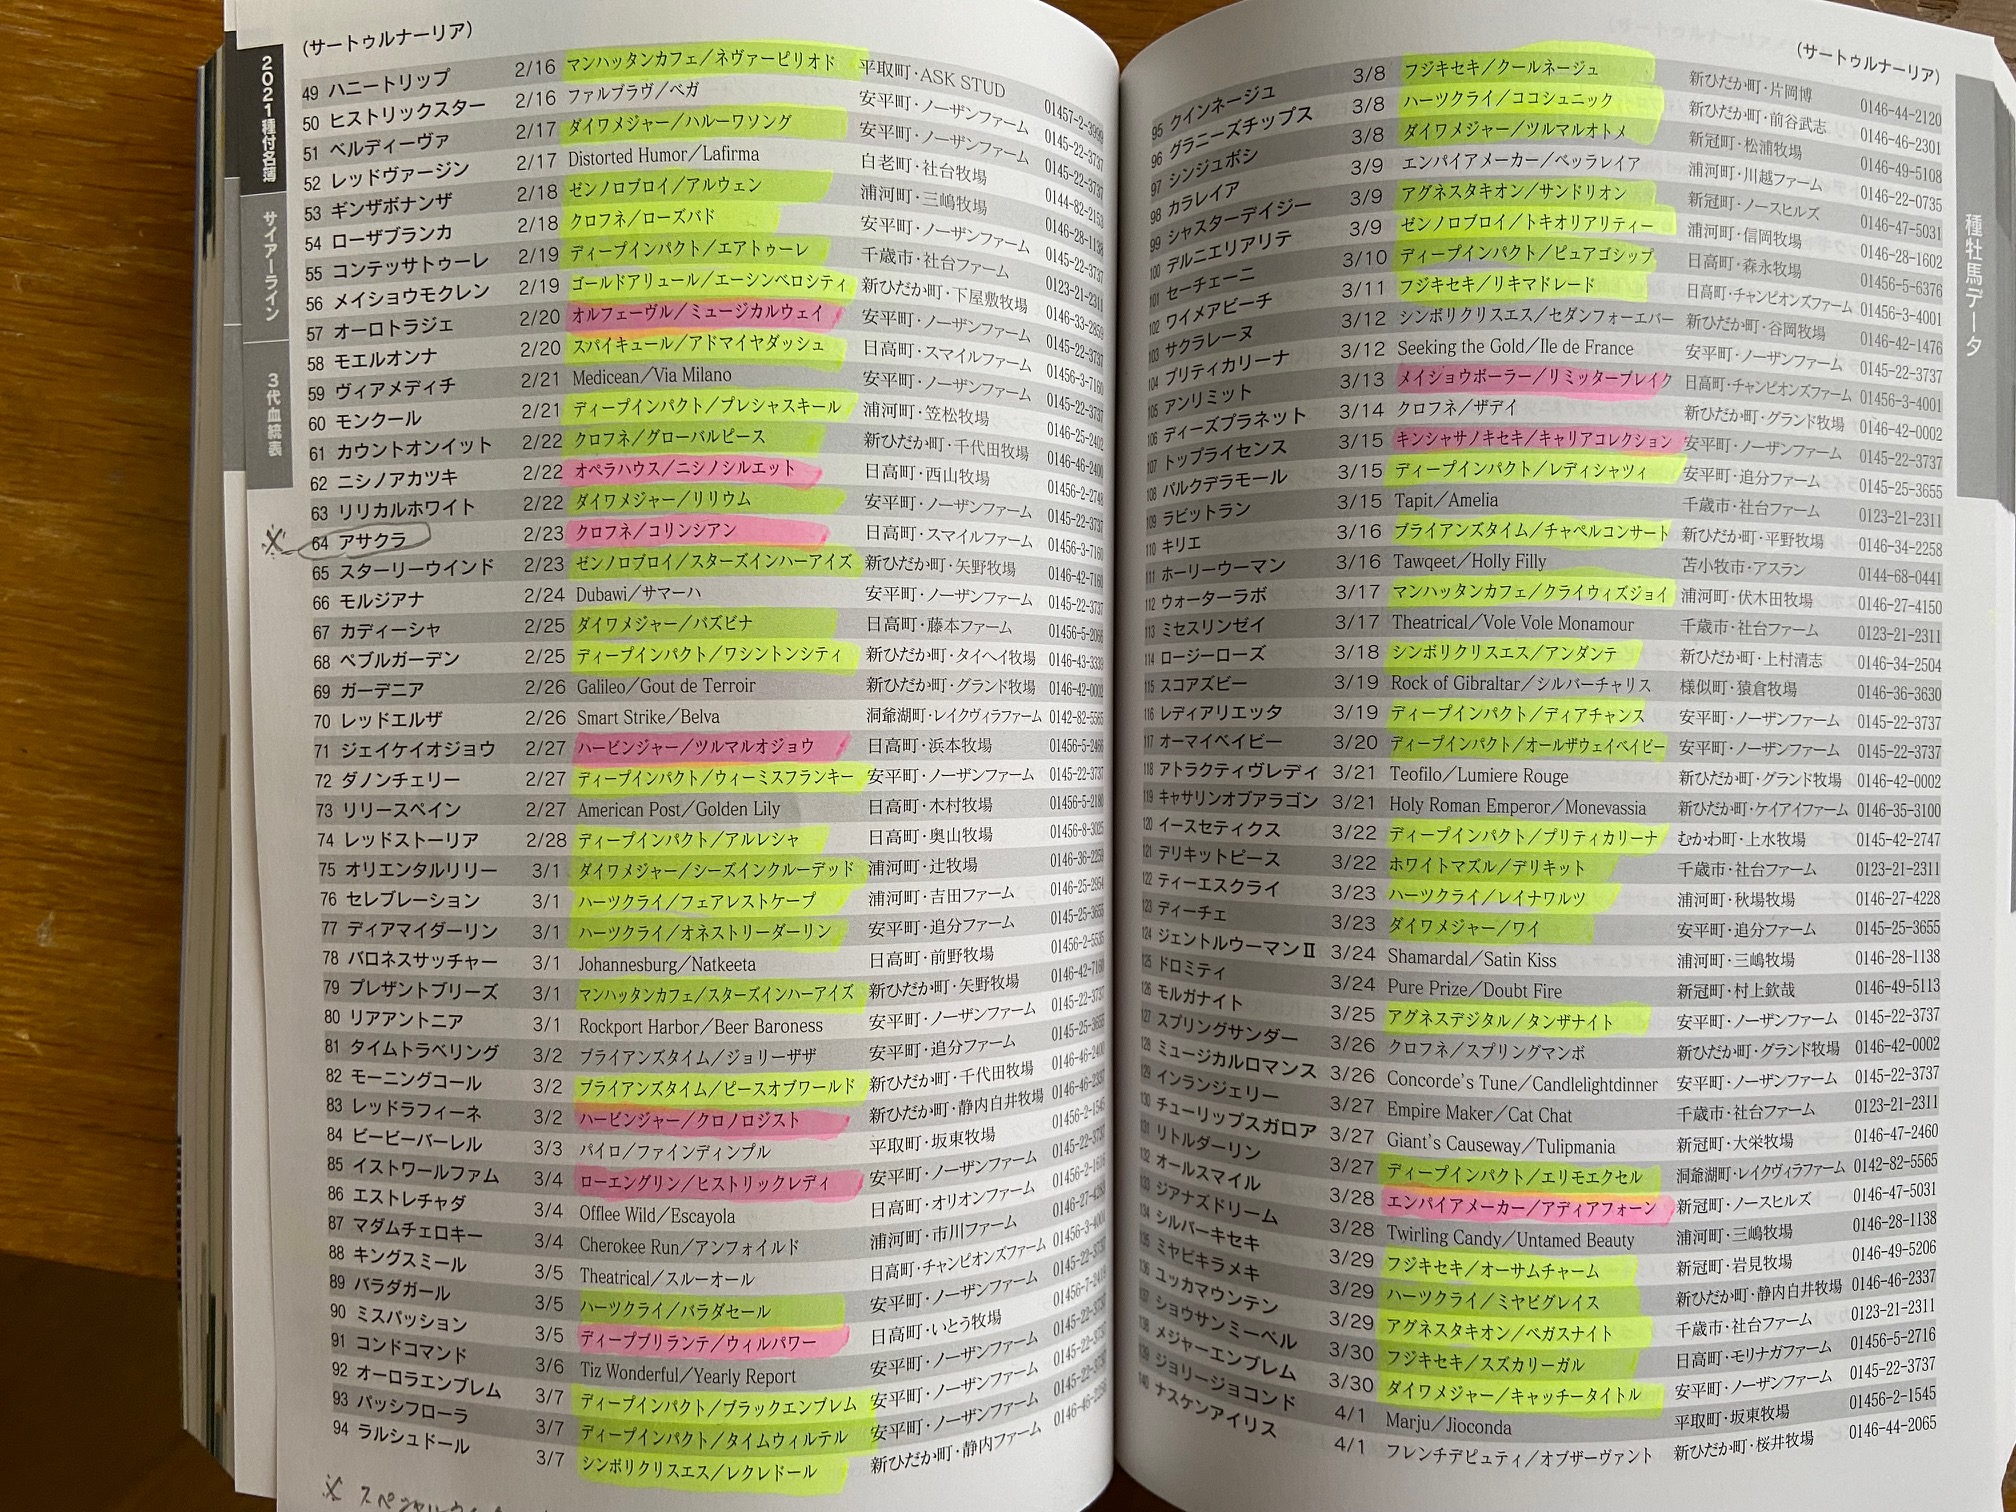 (サートゥルナーリア)
2021種付名簿
サイアーライン
3代血統表
49 ハニートリップ 2/16 マンハッタンカフェ／ネヴァーピリオド 平取町・ASK STUD 01457-2-3999
50 ヒストリックスター 2/16 ファルブラヴ／ベガ 安平町・ノーザンファーム 0145-22-3737
51 ベルディーヴァ 2/17 ダイワメジャー／ハルーワソング 安平町・ノーザンファーム 0145-22-3737
52 レッドヴァージン 2/17 Distorted Humor／Lafirma 白老町・社台牧場 0144-82-2153
53 ギンザボナンザ 2/18 ゼンノロブロイ／アルウェン 浦河町・三嶋牧場 0146-28-1138
54 ローザブランカ 2/18 クロフネ／ローズバド 安平町・ノーザンファーム 0145-22-3737
55 コンテッサトゥーレ 2/19 ディープインパクト／エアトゥーレ 千歳市・社台ファーム 0123-21-2311
56 メイショウモクレン 2/19 ゴールドアリュール／エーシンベロシティ 新ひだか町・下屋敷牧場 0146-33-2859
57 オーロトラジェ 2/20 オルフェーヴル／ミュージカルウェイ 安平町・ノーザンファーム 0145-22-3737
58 モエルオンナ 2/20 スパイキュール／アドマイヤダッシュ 日高町・スマイルファーム 01456-3-7160
59 ヴィアメディチ 2/21 Medicean／Via Milano 安平町・ノーザンファーム 0145-22-3737
60 モンクール 2/21 ディープインパクト／プレシャスキール 浦河町・笠松牧場 0146-25-2402
61 カウントオンイット 2/22 クロフネ／グローバルピース 新ひだか町・千代田牧場 0146-46-2400
62 ニシノアカツキ 2/22 オペラハウス／ニシノシルエット 日高町・西山牧場 01456-2-2748
63 リリカルホワイト 2/22 ダイワメジャー／リリウム 安平町・ノーザンファーム 0145-22-3737
※ 64 アサクラ 2/23 クロフネ／コリンシアン 日高町・スマイルファーム 01456-3-7160
65 スターリーウインド 2/23 ゼンノロブロイ／スターズインハーアイズ 新ひだか町・矢野牧場 0146-42-7160
66 モルジアナ 2/24 Dubawi／サマーハ 安平町・ノーザンファーム 0145-22-3737
67 カディーシャ 2/25 ダイワメジャー／バズビナ 日高町・藤本ファーム 01456-5-2066
68 ペブルガーデン 2/25 ディープインパクト／ワシントンシティ 新ひだか町・タイヘイ牧場 0146-43-3339
69 ガーデニア 2/26 Galileo／Gout de Terroir 新ひだか町・グランド牧場 0146-42-0002
70 レッドエルザ 2/26 Smart Strike／Belva 洞爺湖町・レイクヴィラファーム 0142-82-5565
71 ジェイケイオジョウ 2/27 ハービンジャー／ツルマルオジョウ 日高町・浜本牧場 01456-5-2466
72 ダノンチェリー 2/27 ディープインパクト／ウィーミスフランキー 安平町・ノーザンファーム 0145-22-3737
73 リリースペイン 2/27 American Post／Golden Lily 日高町・木村牧場 01456-5-2180
74 レッドストーリア 2/28 ディープインパクト／アルレシャ 日高町・奥山牧場 01456-8-3025
75 オリエンタルリリー 3/1 ダイワメジャー／シーズインクルーデッド 浦河町・辻牧場 0146-36-2259
76 セレブレーション 3/1 ハーツクライ／フェアレストケープ 浦河町・吉田ファーム 0146-25-2954
77 ディアマイダーリン 3/1 ハーツクライ／オネストリーダーリン 安平町・追分ファーム 0145-25-3655
78 バロネスサッチャー 3/1 Johannesburg／Natkeeta 日高町・前野牧場 01456-2-5535
79 プレザントブリーズ 3/1 マンハッタンカフェ／スターズインハーアイズ 新ひだか町・矢野牧場 0146-42-7160
80 リアアントニア 3/1 Rockport Harbor／Beer Baroness 安平町・ノーザンファーム 0145-22-3737
81 タイムトラベリング 3/2 ブライアンズタイム／ジョリーザザ 安平町・追分ファーム 0145-25-3655
82 モーニングコール 3/2 ブライアンズタイム／ピースオブワールド 新ひだか町・千代田牧場 0146-46-2400
83 レッドラフィーネ 3/2 ハービンジャー／クロノロジスト 新ひだか町・静内白井牧場 0146-46-2337
84 ビービーバーレル 3/3 パイロ／ファインディンプル 平取町・坂東牧場 01456-2-1545
85 イストワールファム 3/4 ローエングリン／ヒストリックレディ 安平町・ノーザンファーム 0145-22-3737
86 エストレチャダ 3/4 Offlee Wild／Escayola 日高町・オリオンファーム 01456-2-1616
87 マダムチェロキー 3/4 Cherokee Run／アンフォイルド 浦河町・市川ファーム 0146-27-4283
88 キングスミール 3/5 Theatrical／スルーオール 日高町・チャンピオンズファーム 01456-3-4001
89 バラダガール 3/5 ハーツクライ／バラダセール 安平町・ノーザンファーム 0145-22-3737
90 ミスパッション 3/5 ディープブリランテ／ウィルパワー 日高町・いとう牧場 01456-7-2418
91 コンドコマンド 3/6 Tiz Wonderful／Yearly Report 安平町・ノーザンファーム 0145-22-3737
92 オーロラエンブレム 3/7 ディープインパクト／ブラックエンブレム 安平町・ノーザンファーム 0145-22-3737
93 パッシフローラ 3/7 ディープインパクト／タイムウィルテル 安平町・ノーザンファーム 0145-22-3737
94 ラルシュドール 3/7 シンボリクリスエス／レクレドール 新ひだか町・静内ファーム 0146-46-2250
※ スペシャルウィ
(サートゥルナーリア)
種牡馬データ
95 クインネージュ 3/8 フジキセキ／クールネージュ 新ひだか町・片岡博 0146-44-2120
96 グラニーズチップス 3/8 ハーツクライ／ココシュニック 新ひだか町・前谷武志 0146-46-2301
97 シンジュボシ 3/8 ダイワメジャー／ツルマルオトメ 新冠町・松浦牧場 0146-49-5108
98 カラレイア 3/9 エンパイアメーカー／ベッラレイア 浦河町・川越ファーム 0146-22-0735
99 シャスターデイジー 3/9 アグネスタキオン／サンドリオン 新冠町・ノースヒルズ 0146-47-5031
100 デルニエリアリテ 3/9 ゼンノロブロイ／トキオリアリティー 浦河町・信岡牧場 0146-28-1602
101 セーチェーニ 3/10 ディープインパクト／ピュアゴシップ 日高町・森永牧場 01456-5-6376
102 ワイメアビーチ 3/11 フジキセキ／リキマドレード 日高町・チャンピオンズファーム 01456-3-4001
103 サクラレーヌ 3/12 シンボリクリスエス／セダンフォーエバー 新ひだか町・谷岡牧場 0146-42-1476
104 プリティカリーナ 3/12 Seeking the Gold／Ile de France 安平町・ノーザンファーム 0145-22-3737
105 アンリミット 3/13 メイショウボーラー／リミッターブレイク 日高町・チャンピオンズファーム 01456-3-4001
106 ディーズプラネット 3/14 クロフネ／ザデイ 新ひだか町・グランド牧場 0146-42-0002
107 トップライセンス 3/15 キンシャサノキセキ／キャリアコレクション 安平町・ノーザンファーム 0145-22-3737
108 バルクデラモール 3/15 ディープインパクト／レディシャツィ 安平町・追分ファーム 0145-25-3655
109 ラビットラン 3/15 Tapit／Amelia 千歳市・社台ファーム 0123-21-2311
110 キリエ 3/16 ブライアンズタイム／チャペルコンサート 新ひだか町・平野牧場 0146-34-2258
111 ホーリーウーマン 3/16 Tawqeet／Holly Filly 苫小牧市・アスラン 0144-68-0441
112 ウォーターラボ 3/17 マンハッタンカフェ／クライウィズジョイ 浦河町・伏木田牧場 0146-27-4150
113 ミセスリンゼイ 3/17 Theatrical／Vole Vole Monamour 千歳市・社台ファーム 0123-21-2311
114 ロージーローズ 3/18 シンボリクリスエス／アンダンテ 新ひだか町・上村清志 0146-34-2504
115 スコアズビー 3/19 Rock of Gibraltar／シルバーチャリス 様似町・猿倉牧場 0146-36-3630
116 レディアリエッタ 3/19 ディープインパクト／ディアチャンス 安平町・ノーザンファーム 0145-22-3737
117 オーマイベイビー 3/20 ディープインパクト／オールザウェイベイビー 安平町・ノーザンファーム 0145-22-3737
118 アトラクティヴレディ 3/21 Teofilo／Lumiere Rouge 新ひだか町・グランド牧場 0146-42-0002
119 キャサリンオブアラゴン 3/21 Holy Roman Emperor／Monevassia 新ひだか町・ケイアイファーム 0146-35-3100
120 イースセティクス 3/22 ディープインパクト／プリティカリーナ むかわ町・上水牧場 0145-42-2747
121 デリキットピース 3/22 ホワイトマズル／デリキット 千歳市・社台ファーム 0123-21-2311
122 ティーエスクライ 3/23 ハーツクライ／レイナワルツ 浦河町・秋場牧場 0146-27-4228
123 ディーチェ 3/23 ダイワメジャー／ワイ 安平町・追分ファーム 0145-25-3655
124 ジェントルウーマンⅡ 3/24 Shamardal／Satin Kiss 浦河町・三嶋牧場 0146-28-1138
125 ドロミティ 3/24 Pure Prize／Doubt Fire 新冠町・村上欽哉 0146-49-5113
126 モルガナイト 3/25 アグネスデジタル／タンザナイト 安平町・ノーザンファーム 0145-22-3737
127 スプリングサンダー 3/26 クロフネ／スプリングマンボ 新ひだか町・グランド牧場 0146-42-0002
128 ミュージカルロマンス 3/26 Concorde's Tune／Candlelightdinner 安平町・ノーザンファーム 0145-22-3737
129 インランジェリー 3/27 Empire Maker／Cat Chat 千歳市・社台ファーム 0123-21-2311
130 チューリップスガロア 3/27 Giant's Causeway／Tulipmania 新冠町・大栄牧場 0146-47-2460
131 リトルダーリン 3/27 ディープインパクト／エリモエクセル 洞爺湖町・レイクヴィラファーム 0142-82-5565
132 オールスマイル 3/28 エンパイアメーカー／アディアフォーン 新冠町・ノースヒルズ 0146-47-5031
133 ジアナズドリーム 3/28 Twirling Candy／Untamed Beauty 浦河町・三嶋牧場 0146-28-1138
134 シルバーキセキ 3/29 フジキセキ／オーサムチャーム 新冠町・岩見牧場 0146-49-5206
135 ミヤビキラメキ 3/29 ハーツクライ／ミヤビグレイス 新ひだか町・静内白井牧場 0146-46-2337
136 ユッカマウンテン 3/29 アグネスタキオン／ベガスナイト 千歳市・社台ファーム 0123-21-2311
137 ショウサンミーベル 3/30 フジキセキ／スズカリーガル 日高町・モリナガファーム 01456-5-2716
138 メジャーエンブレム 3/30 ダイワメジャー／キャッチータイトル 安平町・ノーザンファーム 0145-22-3737
139 ジョリージョコンド 4/1 Marju／Jioconda 平取町・坂東牧場 01456-2-1545
140 ナスケンアイリス 4/1 フレンチデピュティ／オブザーヴァント 新ひだか町・桜井牧場 0146-44-2065